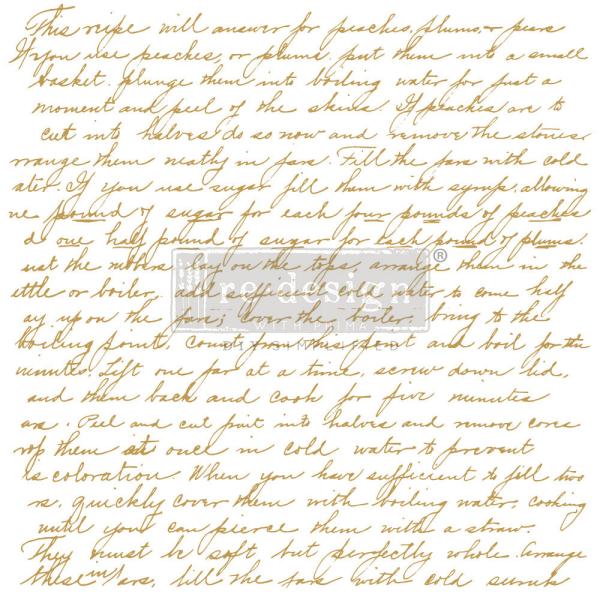 This recipe will answer for peaches, plums, & pears
If you use peaches, or plums, put them into a small
basket. plunge them into boiling water for just a
moment and peel of the skins. If peaches are to
cut into halves do so now and remove the stones.
rrange them neatly in jars. Fill the jars with cold
ater. If you use sugar fill them with syrup, allowing
ne pound of sugar for each four pounds of peaches
d one half pound of sugar for each pound of plums.
ust the rubers lay on the tops, arrange them in the
ettle or boiler, add sufficient cold water to come half
ay up on the jars; cover the boiler, bring to the
boiling point, count from this point and boil for ten
minutes. Lift one jar at a time, screw down lid,
and them back and cook for five minutes
ars. Peel and cut fruit into halves and remove cores
rop them at once in cold water to prevent
iscoloration. When you have sufficient to fill two
rs, quickly cover them with boiling water, cooking
until you can pierce them with a straw.
They must be soft, but perfectly whole. Arrange
these in jars, fill the jars with cold
re·design®
WITH PRIMA